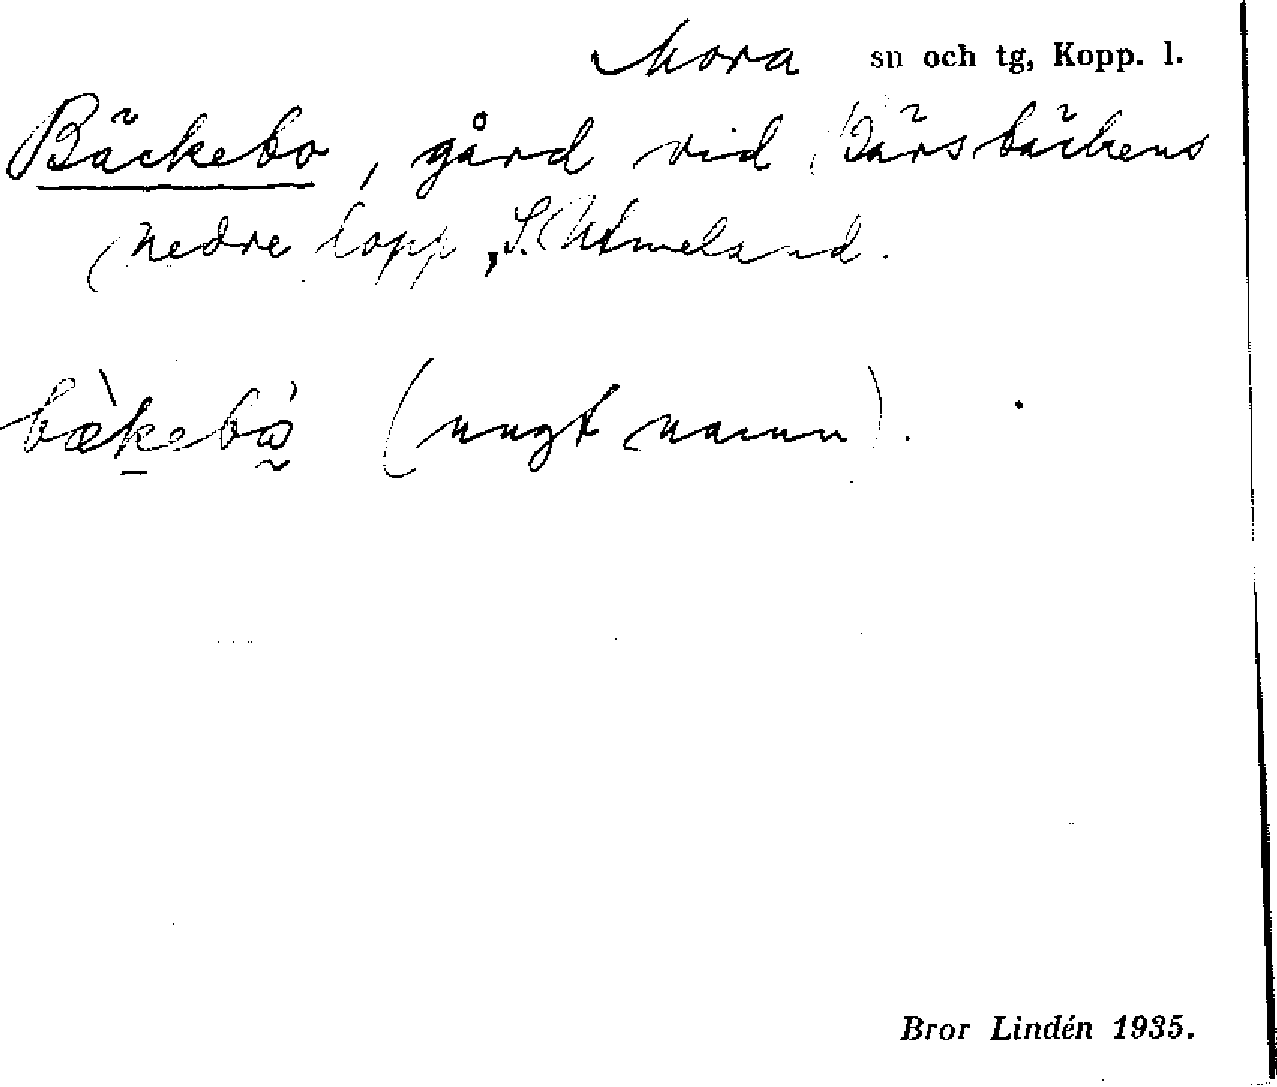 Mora sn och tg, Kopp. l.
Bäckebo, gård vid Bärsbäckens
nedre lopp, S. Utmeland.
bæ̀kebo (ungt namn).
Bror Lindén 1935.